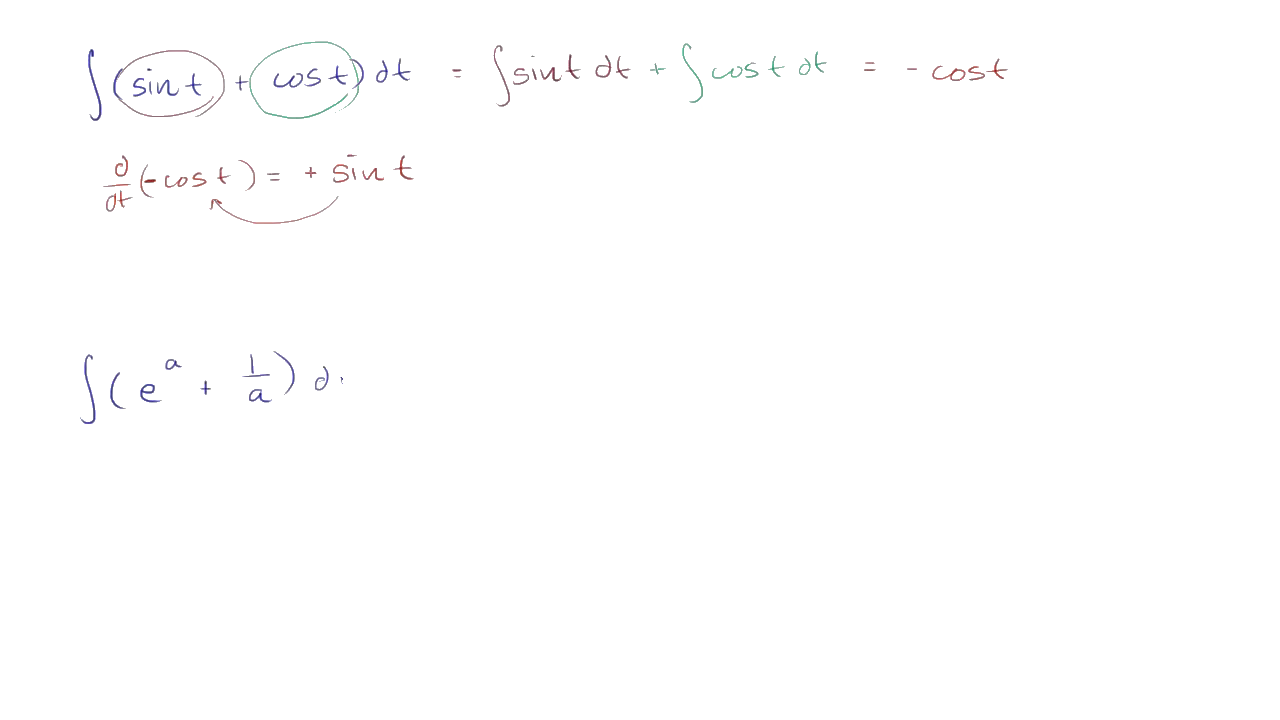 ∫(sin t + cos t) dt = ∫sin t dt + ∫cos t dt = - cos t
d/dt (-cos t) = + sin t
∫(e^a + 1/a) d